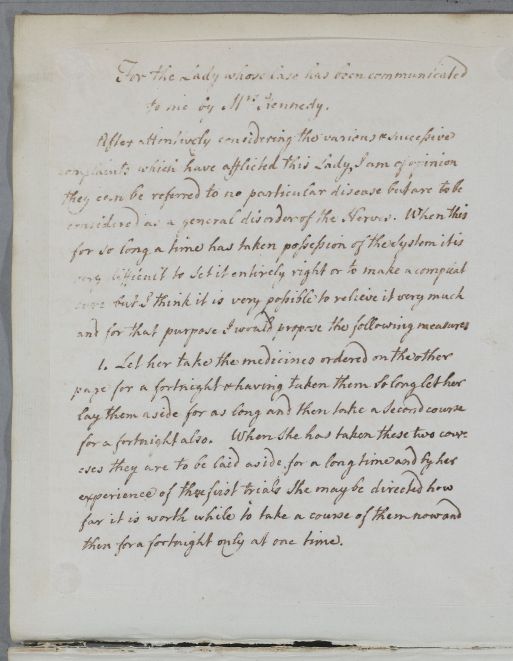 For the Lady whose Case has been communicated
to me by Mrs. Kennedy.
After attentively considering the various & successive
complaints which have afflicted this Lady, I am of opinion
they can be referred to no particular disease but are to be
considered as a general disorder of the Nerves. When this
for so long a time has taken possession of the System it is
very difficult to set it entirely right or to make a compleat
cure but I think it is very possible to relieve it very much
and for that purpose I would propose the following measures
1. Let her take the medicines ordered on the other
page for a fortnight & having taken them so long let her
lay them aside for as long and then take a second course
for a fortnight also. When she has taken these two cour-
ses they are to be laid aside for a long time and by her
experience of these first trials she may be directed how
far it is worth while to take a course of them now and
then for a fortnight only at one time.